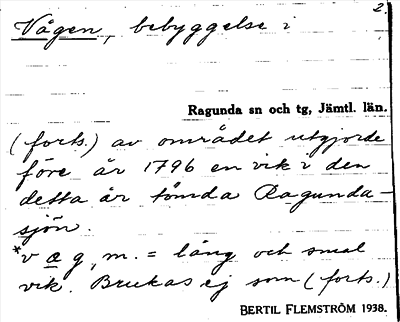 2.
Vågen, bebyggelse i
Ragunda sn och tg, Jämtl. län.
(forts.) av området utgjorde
före år 1796 en vik i den
detta år tömda Ragunda-
sjön.
*våg, m. = lång och smal
vik. Brukas ej som (forts.)
BERTIL FLEMSTRÖM 1938.